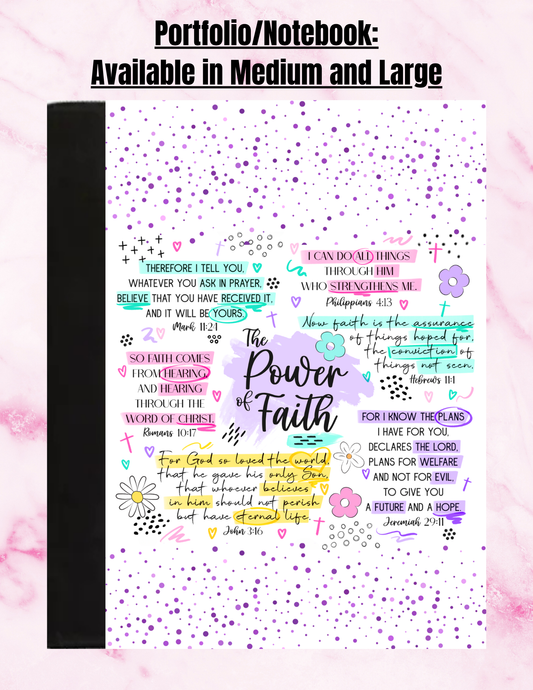 Portfolio/Notebook:
Available in Medium and Large
THEREFORE I TELL YOU,
WHATEVER YOU ASK IN PRAYER,
BELIEVE THAT YOU HAVE RECEIVED IT,
AND IT WILL BE YOURS.
Mark 11:24
I CAN DO ALL THINGS
THROUGH HIM
WHO STRENGTHENS ME.
Philippians 4:13
Now faith is the assurance
of things hoped for,
the conviction of
things not seen.
Hebrews 11:1
SO FAITH COMES
FROM HEARING,
AND HEARING
THROUGH THE
WORD OF CHRIST.
Romans 10:17
The
Power
of Faith
FOR I KNOW THE PLANS
I HAVE FOR YOU,
DECLARES THE LORD,
PLANS FOR WELFARE
AND NOT FOR EVIL,
TO GIVE YOU
A FUTURE AND A HOPE.
Jeremiah 29:11
For God so loved the world,
that he gave his only Son,
that whoever believes
in him should not perish
but have eternal life.
John 3:16